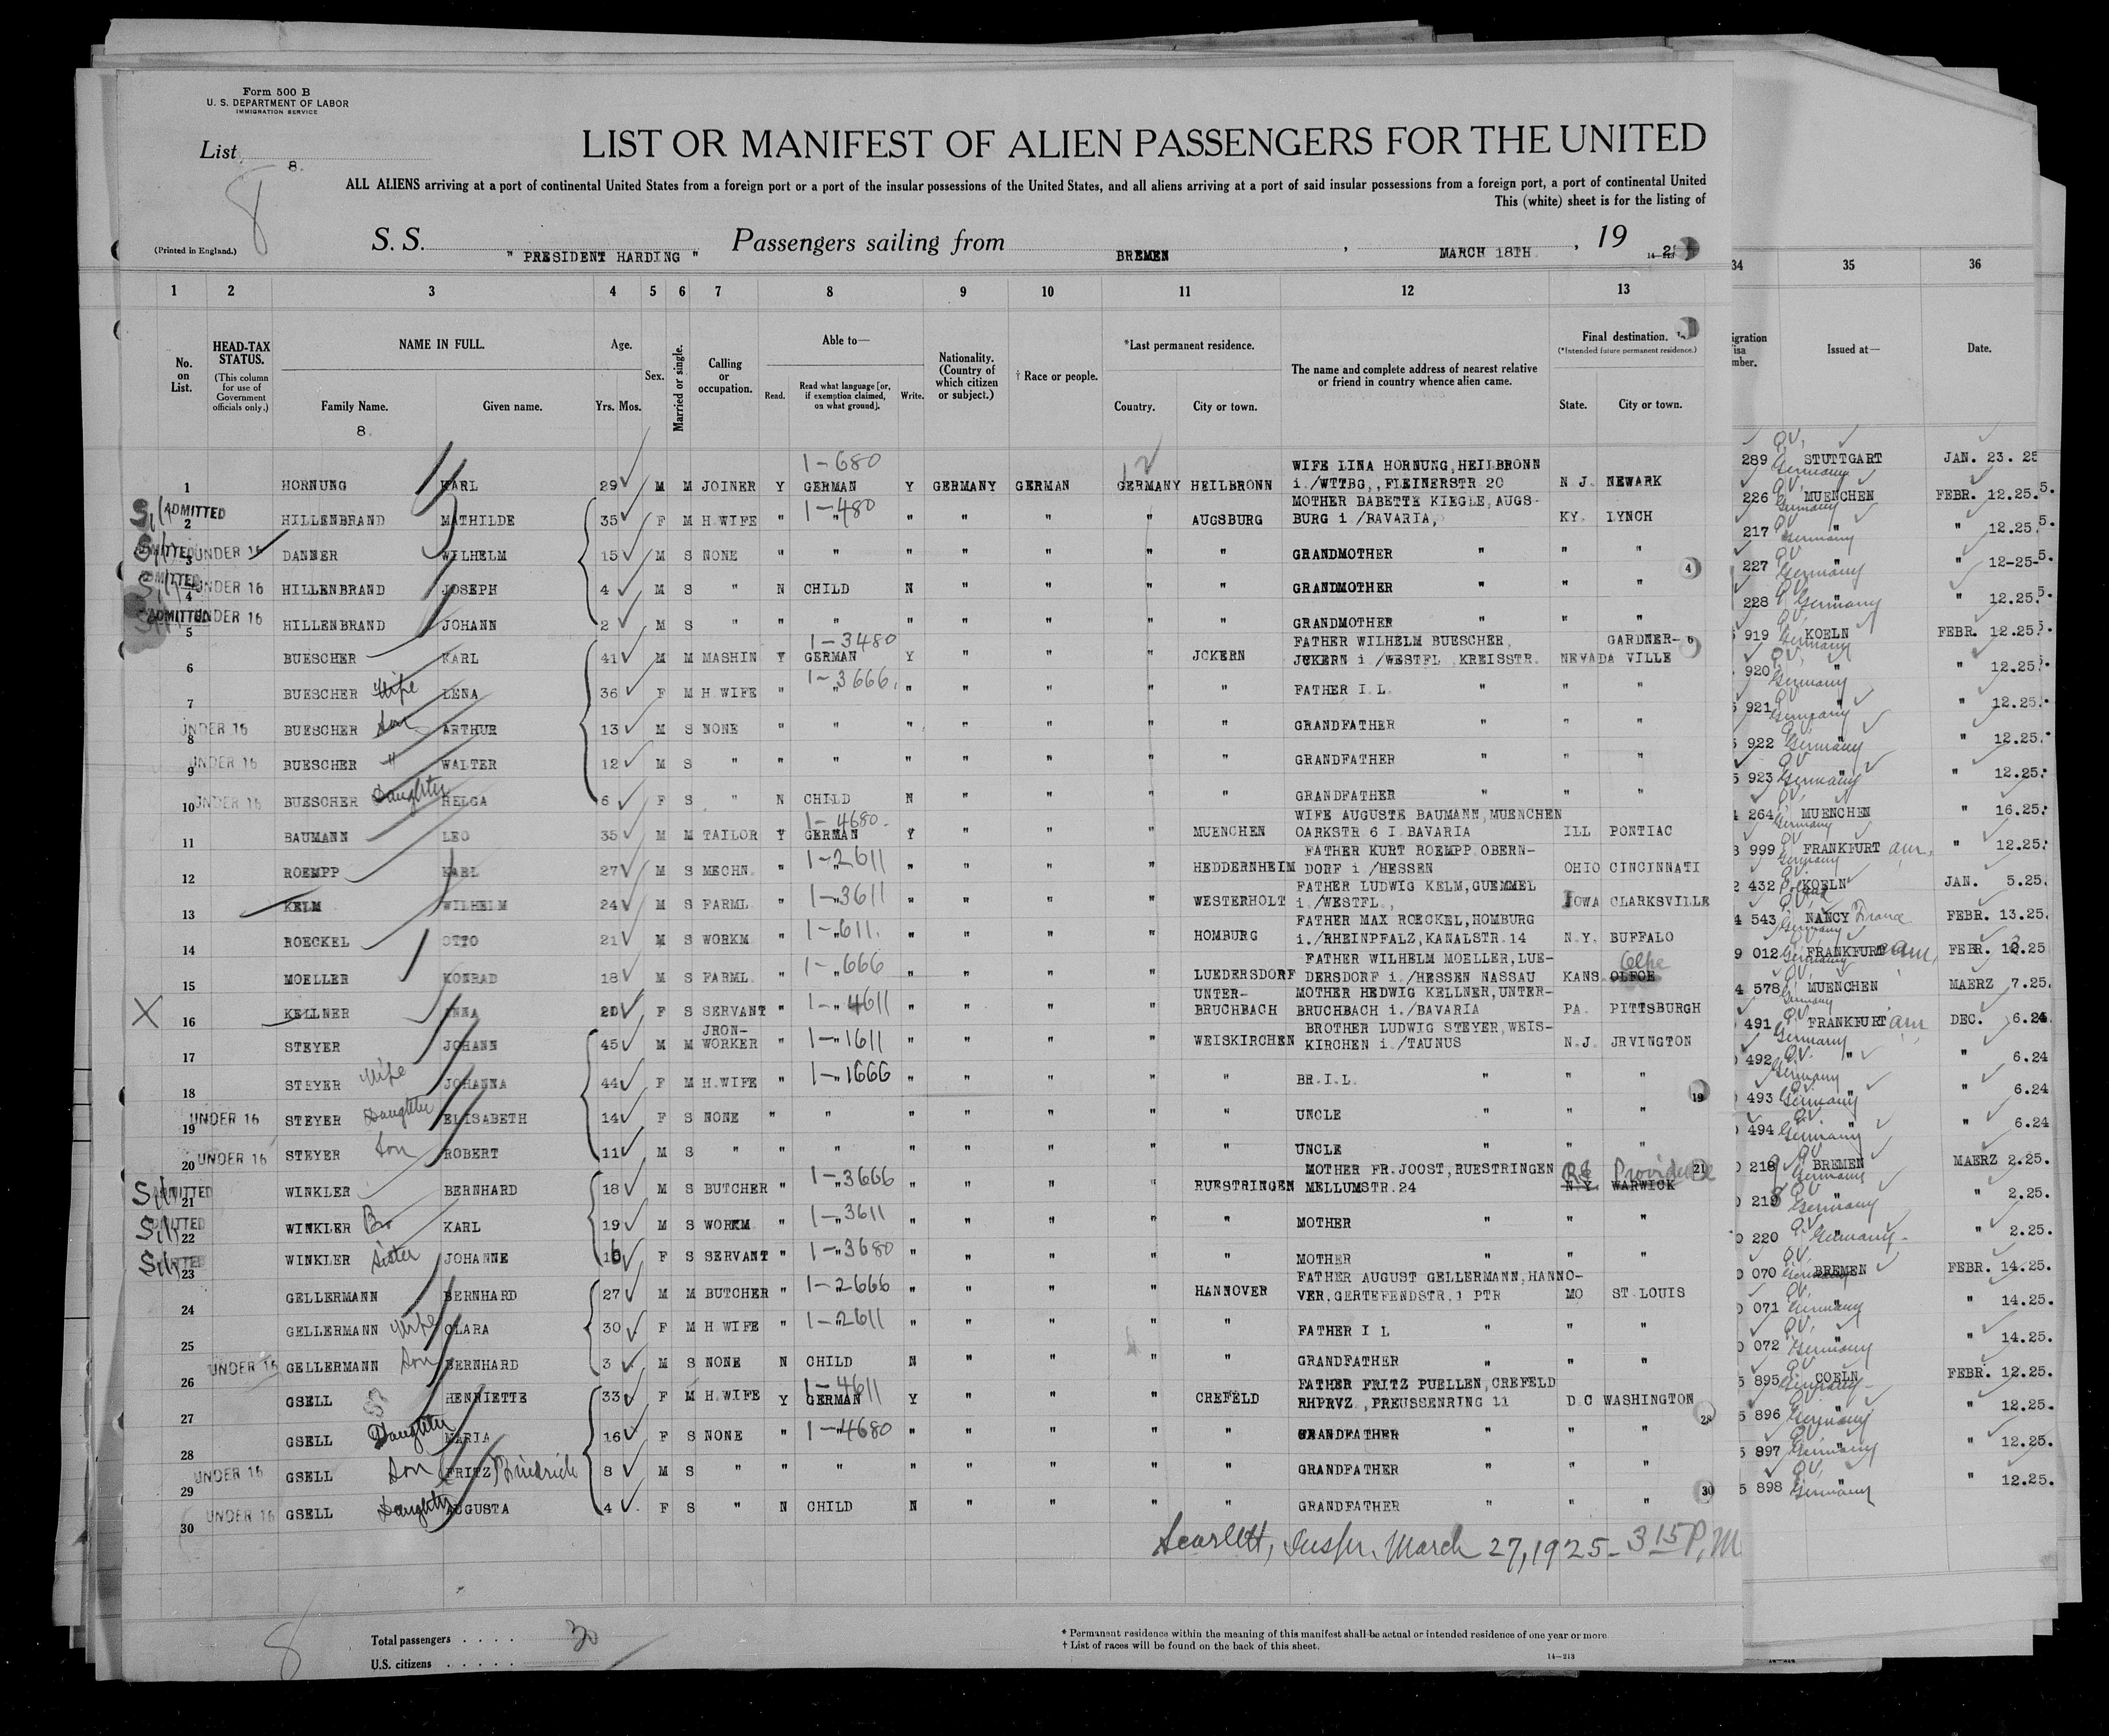 Form 500 B
U. S. DEPARTMENT OF LABOR
IMMIGRATION SERVICE
List 8.
8
LIST OR MANIFEST OF ALIEN PASSENGERS FOR THE UNITED
ALL ALIENS arriving at a port of continental United States from a foreign port or a port of the insular possessions of the United States, and all aliens arriving at a port of said insular possessions from a foreign port, a port of continental United
This (white) sheet is for the listing of
(Printed in England.)
S. S. " PRESIDENT HARDING " Passengers sailing from BREMEN , MARCH 18TH. , 19 2
14-213
1 2 3 4 5 6 7 8 9 10 11 12 13 34 35 36
No. on List.
HEAD-TAX STATUS. (This column for use of Government officials only.)
NAME IN FULL. Family Name. Given name.
8.
Age. Yrs. Mos.
Sex.
Married or single.
Calling or occupation.
Able to— Read. Read what language [or, if exemption claimed, on what ground]. Write.
Nationality. (Country of which citizen or subject.)
† Race or people.
*Last permanent residence. Country. City or town.
The name and complete address of nearest relative or friend in country whence alien came.
Final destination. (*Intended future permanent residence.) State. City or town.
Issued at— Date.
1 HORNUNG KARL 29 M M JOINER Y 1-680 GERMAN Y GERMANY GERMAN GERMANY HEILBRONN WIFE LINA HORNUNG, HEILBRONN i./WTTBG,,FLEINERSTR 20 N.J. NEWARK 289 STUTTGART Germany JAN. 23. 25
ADMITTED 2 HILLENBRAND MATHILDE 35 F M H.WIFE " 1-480 " " " " " AUGSBURG MOTHER BABETTE KIEGLE, AUGS-BURG i /BAVARIA, KY. LYNCH 226 MUENCHEN Germany FEBR. 12.25.
ADMITTED 3 UNDER 16 DANNER WILHELM 15 M S NONE " " " " " " " GRANDMOTHER " " " 217 " Germany " 12.25
ADMITTED 4 UNDER 16 HILLENBRAND JOSEPH 4 M S " N CHILD N " " " " GRANDMOTHER " " " 227 " Germany " 12-25-
ADMITTED 5 UNDER 16 HILLENBRAND JOHANN 2 M S " " " " " " " " GRANDMOTHER " " " 228 " Germany " 12.25.
6 BUESCHER KARL 41 M M MASHIN Y 1-3480 GERMAN Y " " " JCKERN FATHER WILHELM BUESCHER, JCKERN i /WESTFL KREISSTR. NEVADA GARDNER-VILLE 919 KOELN Germany FEBR. 12.25
7 BUESCHER Wife LENA 36 F M H.WIFE " 1-3666. " " " " " " FATHER I.L. " " " 920 " Germany " 12.25
8 UNDER 16 BUESCHER Son ARTHUR 13 M S NONE " " " " " " " GRANDFATHER " " " 921 " Germany " 12.25.
9 UNDER 16 BUESCHER " WALTER 12 M S " " " " " " " " GRANDFATHER " " " 922 " Germany " 12.25
10 UNDER 16 BUESCHER Daughter HELGA 6 F S " N CHILD N " " " " GRANDFATHER " " " 923 " Germany " 12.25
11 BAUMANN LEO 35 M M TAILOR Y 1-4680- GERMAN Y " " " MUENCHEN WIFE AUGUSTE BAUMANN, MUENCHEN OARKSTR 6 I BAVARIA ILL PONTIAC 264 MUENCHEN Germany " 16.25
12 ROEMPP KARL 27 M S MECHN. " 1-2611 " " " " HEDDERNHEIM FATHER KURT ROEMPP OBERN-DORF i /HESSEN OHIO CINCINNATI 999 FRANKFURT am, Germany " 12.25
13 KELM WILHELM 24 M S FARML " 1-3611 " " " " WESTERHOLT FATHER LUDWIG KELM, GUEMMEL i./WESTFL, IOWA CLARKSVILLE 432 KOELN Poland JAN. 5.25.
14 ROECKEL OTTO 21 M S WORKM " 1-611. " " " " HOMBURG FATHER MAX ROECKEL, HOMBURG i./RHEINPFALZ, KANALSTR.14 N.Y. BUFFALO 543 NANCY France Germany FEBR. 13.25.
15 MOELLER KONRAD 18 M S FARML " 1-666 " " " " LUEDERSDORF FATHER WILHELM MOELLER, LUE-DERSDORF i./HESSEN NASSAU KANS OLFCE Olpe 012 FRANKFURT am, Germany FEBR. 25
X 16 KELLNER ANNA 20 F S SERVANT " 1-4611 " " " " UNTER-BRUCHBACH MOTHER HEDWIG KELLNER, UNTER-BRUCHBACH i./BAVARIA PA. PITTSBURGH 578 MUENCHEN Germany MAERZ 7.25.
17 STEYER JOHANN 45 M M JRON-WORKER " 1-1611 " " " " WEISKIRCHEN BROTHER LUDWIG STEYER, WEIS-KIRCHEN i./TAUNUS N.J. JRVINGTON 491 FRANKFURT am Germany DEC. 6.24
18 STEYER Wife JOHANNA 44 F M H.WIFE " 1-1666 " " " " " BR.I.L. " " " 492 " Germany " 6.24
19 UNDER 16 STEYER Daughter ELISABETH 14 F S NONE " " " " " " " UNCLE " " " 493 " Germany " 6.24
20 UNDER 16 STEYER Son ROBERT 11 M S " " " " " " " " UNCLE " " " 494 " Germany " 6.24
ADMITTED 21 WINKLER BERNHARD 18 M S BUTCHER " 1-3666 " " " " RUESTRINGEN MOTHER FR.JOOST, RUESTRINGEN MELLUMSTR.24 N.Y. WARWICK Providence 218 BREMEN Germany MAERZ 2.25.
ADMITTED 22 WINKLER Bro KARL 19 M S WORKM " 1-3611 " " " " " MOTHER " " " 219 " Germany " 2.25.
23 WINKLER Sister JOHANNE 16 F S SERVANT " 1-3680 " " " " " MOTHER " " " 220 " Germany " 2.25.
24 GELLERMANN BERNHARD 27 M M BUTCHER " 1-2666 " " " " HANNOVER FATHER AUGUST GELLERMANN, HANNO-VER, GERTEFENDSTR.1 PTR MO ST.LOUIS 070 BREMEN Germany FEBR. 14.25.
25 GELLERMANN Wife CLARA 30 F M H.WIFE " 1-2611 " " " " " FATHER I L " " " 071 " Germany " 14.25.
26 UNDER 16 GELLERMANN Son BERNHARD 3 M S NONE N CHILD N " " " " GRANDFATHER " " " 072 " Germany " 14.25.
27 GSELL HENRIETTE 33 F M H.WIFE Y 1-4611 GERMAN Y " " " CREFELD FATHER FRITZ PUELLEN, CREFELD RHPRVZ., PREUSSENRING 11 D C WASHINGTON 895 COELN Germany FEBR. 12.25.
28 GSELL Daughter MARIA 16 F S NONE " 1-4680 " " " " " GRANDFATHER " " " 896 " Germany " 12.25.
29 UNDER 16 GSELL Son (FRITZ) Friedrich 8 M S " " " " " " " " GRANDFATHER " " " 897 " Germany " 12.25.
30 UNDER 16 GSELL Daughter AUGUSTA 4 F S " N CHILD N " " " " GRANDFATHER " " " 898 Germany " 12.25.
Scarlett, Inspr. March 27, 1925 - 3 15 P.M
8
Total passengers . . . . 30
U.S. citizens . . . . . .
* Permanent residence within the meaning of this manifest shall be actual or intended residence of one year or more.
† List of races will be found on the back of this sheet.
14-213